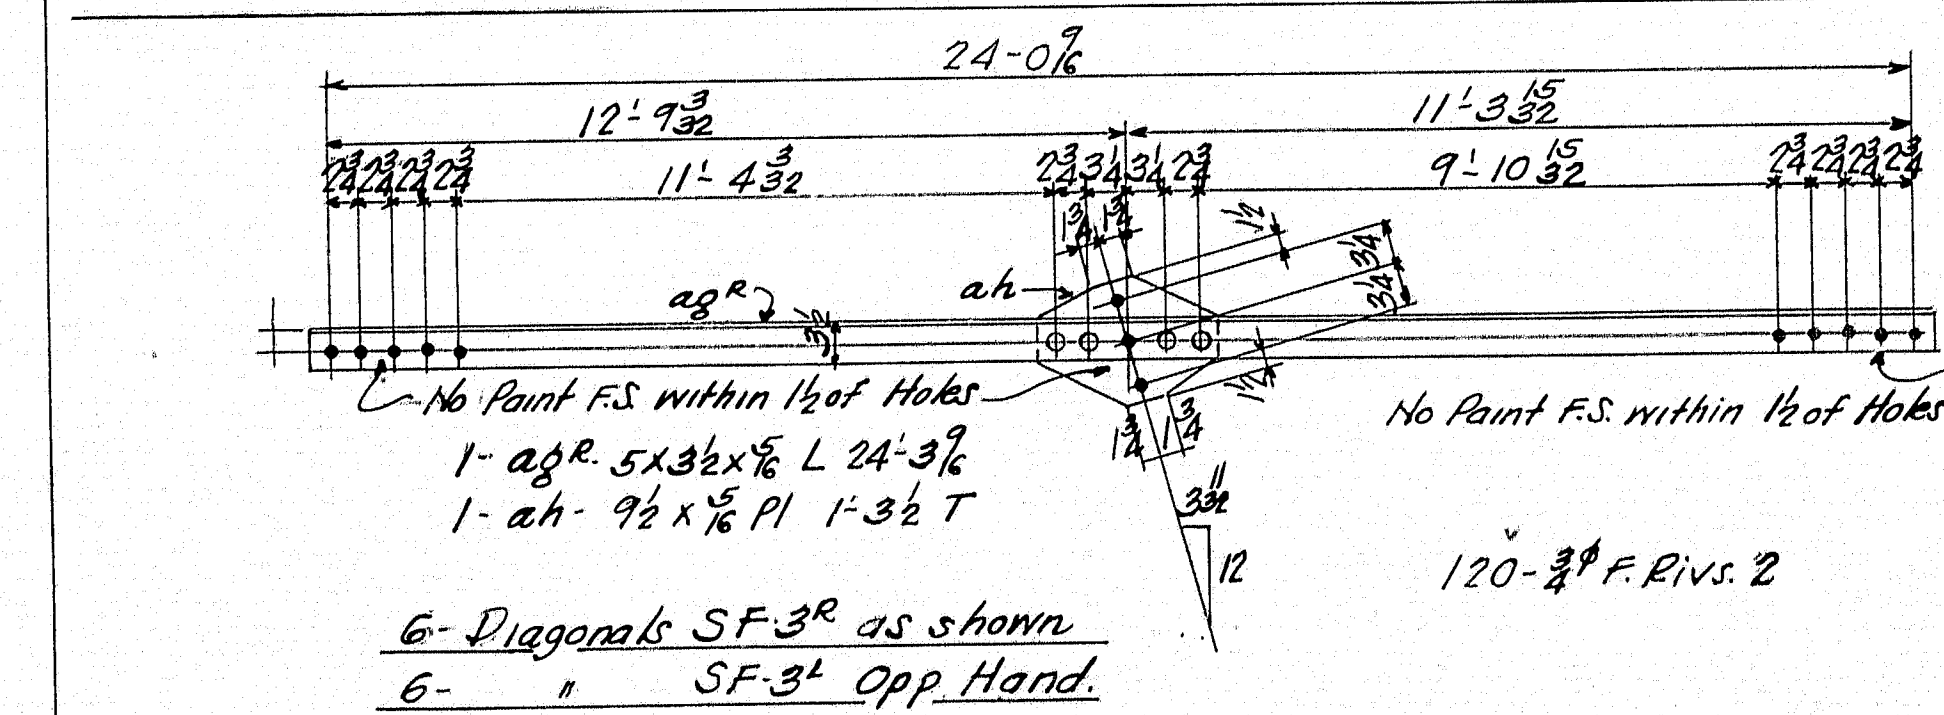 24-0 9/16
12'-9 3/32 11'-3 15/32
2 3/4 2 3/4 2 3/4 2 3/4 11'-4 3/32 2 3/4 3 1/4 3 1/4 2 3/4 9'-10 15/32 2 3/4 2 3/4 2 3/4 2 3/4
1 3/4 1 3/4 1 1/2
3 1/4
3 1/4
ag R ah
3 1/2
1 1/2
No Paint F.S. within 1 1/2 of Holes
No Paint F.S. within 1 1/2 of Holes
1 3/4 1 3/4
1- ag R. 5 x 3 1/2 x 5/16 L 24'-3 9/16
1- ah - 9 1/2 x 5/16 Pl 1'-3 1/2 T
3 11/32
12
120 - 3/4 φ F. Rivs. 2
6- Diagonals SF-3R as shown
6- " SF-3L Opp. Hand.